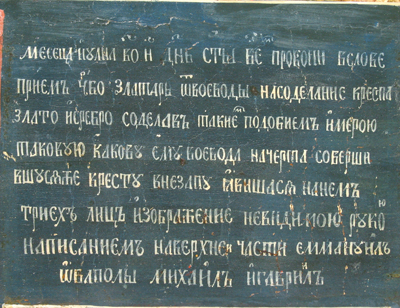 месеца иулиа во и҃ днь ст҃ы вм҃ч прокопи в слове
приемъ ч҃во златарь ѿ воеводы на соделание креста
злато и сребро соделав такие ͭ подобиемъ и мерою
таковую какову ему воевода начерта соверши
вшуся же кресту внезапу ꙗвишася на нем
триехъ лицъ изображение невидимою рукою
написанием на верхней части еммануилъ
ѿ ваполы михаилъ и гавриилъ